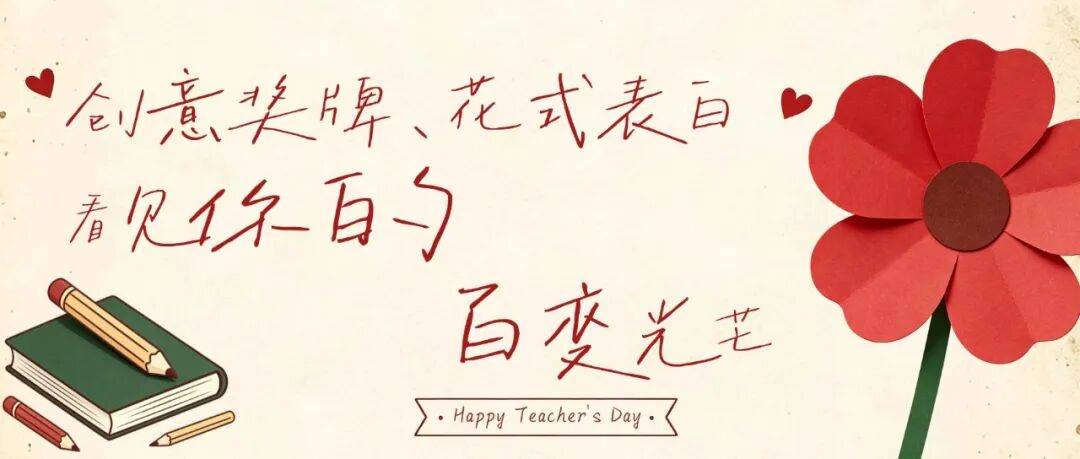 创意奖牌、花式表白
看见你的
百变光芒
Happy Teacher's Day